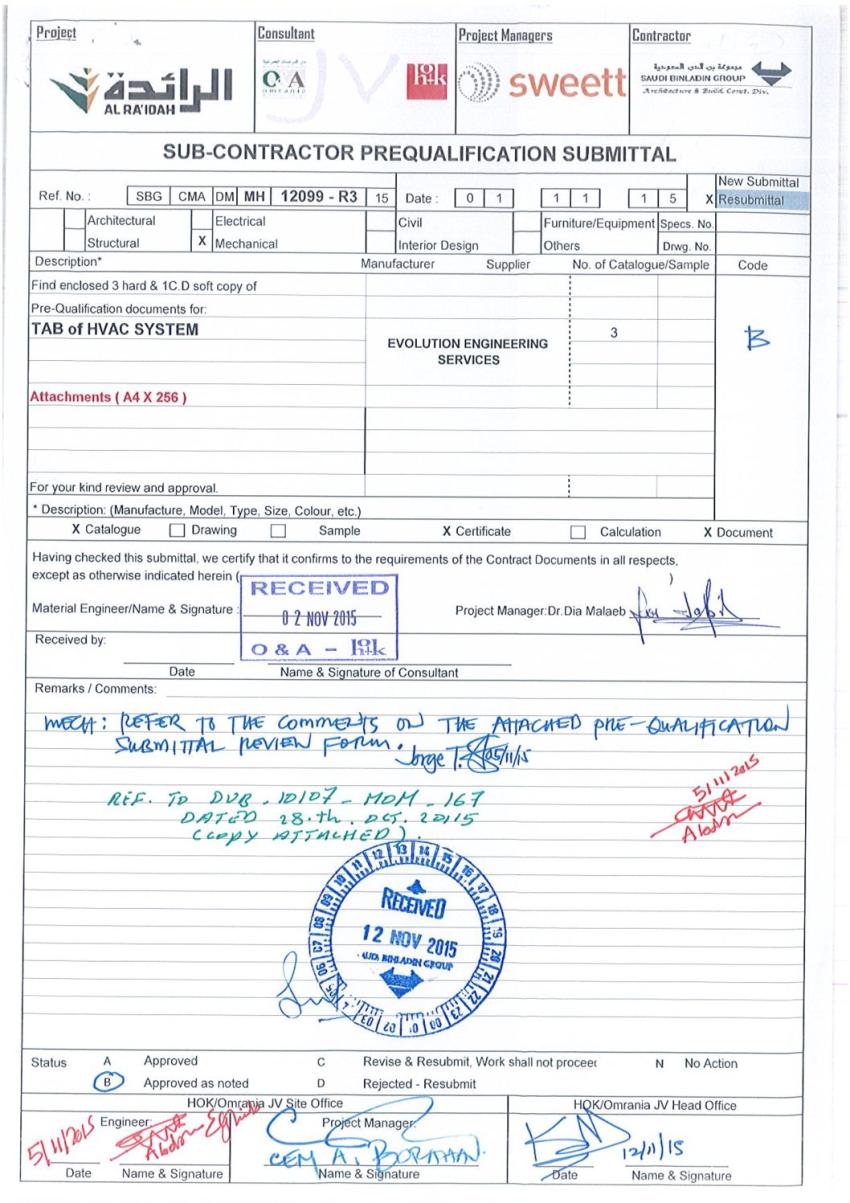 Project
Consultant
Project Managers
Contractor
الرائدة
AL RA'IDAH
O&A
OMRANIA
JV
hok
sweett
مجموعة بن لادن السعودية
SAUDI BINLADIN GROUP
Architecture & Build. Const. Div.
SUB-CONTRACTOR PREQUALIFICATION SUBMITTAL
Ref. No. : SBG CMA DM MH 12099 - R3 15 Date : 0 1 1 1 1 5
New Submittal
X Resubmittal
Architectural Electrical Civil Furniture/Equipment Specs. No.
Structural X Mechanical Interior Design Others Drwg. No.
Description* Manufacturer Supplier No. of Catalogue/Sample Code
Find enclosed 3 hard & 1C.D soft copy of
Pre-Qualification documents for:
TAB of HVAC SYSTEM
EVOLUTION ENGINEERING
SERVICES
3
B
Attachments ( A4 X 256 )
For your kind review and approval.
* Description: (Manufacture, Model, Type, Size, Colour, etc.)
X Catalogue Drawing Sample X Certificate Calculation X Document
Having checked this submittal, we certify that it confirms to the requirements of the Contract Documents in all respects,
except as otherwise indicated herein ( )
RECEIVED
02 NOV 2015
O & A - hok
Material Engineer/Name & Signature :
Project Manager:Dr.Dia Malaeb
Received by:
Date Name & Signature of Consultant
Remarks / Comments:
MECH: REFER TO THE COMMENTS ON THE ATTACHED PRE-QUALIFICATION
SUBMITTAL REVIEW FORM. Jorge T. 05/11/15
REF. TO DUB - 10107 - MOM - 167
DATED 28.th. OCT. 2015
(COPY ATTACHED).
5/11/2015
13 14 15 16 17 18 19 20 21 22 23 00 01 02 03 04 05 06 07 08 09 10 11 12
RECEIVED
12 NOV 2015
SAUDI BINLADIN GROUP
Status A Approved C Revise & Resubmit, Work shall not proceed N No Action
B Approved as noted D Rejected - Resubmit
HOK/Omrania JV Site Office
HOK/Omrania JV Head Office
Engineer:
Project Manager:
5/11/2015
CEM A. BORMAAN.
12/11/15
Date Name & Signature Name & Signature Date Name & Signature